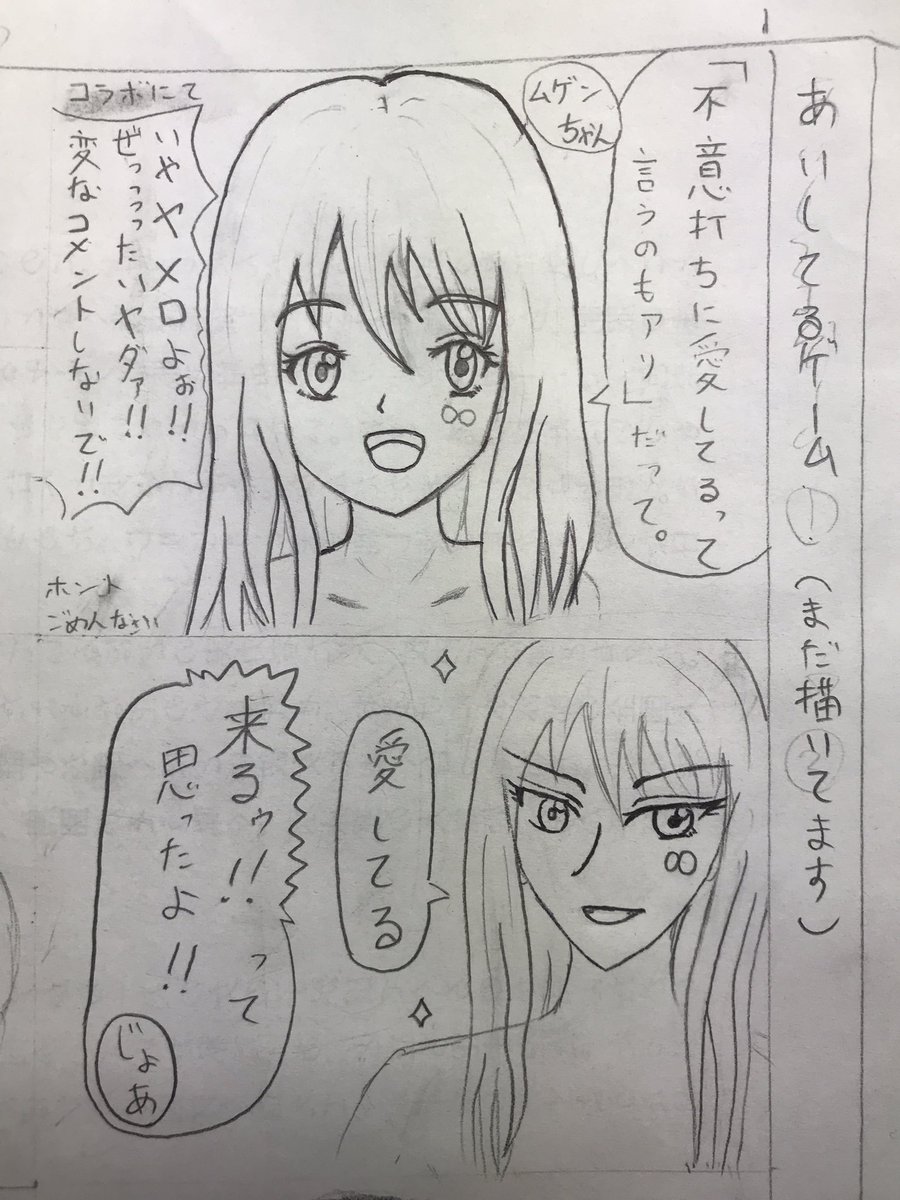 1
あいしてるゲーム!(まだ描いてます)
「不意打ちに愛してるって
言うのもアリ」だって。
ムゲン
ちゃん
コラボにて
いややメロよぉ!!
ぜっっったいヤダァ!!
変なコメントしないで!!
ホント
ごめんなさい
愛してる
来るゥ!!って
思ったよ!!
じょあ